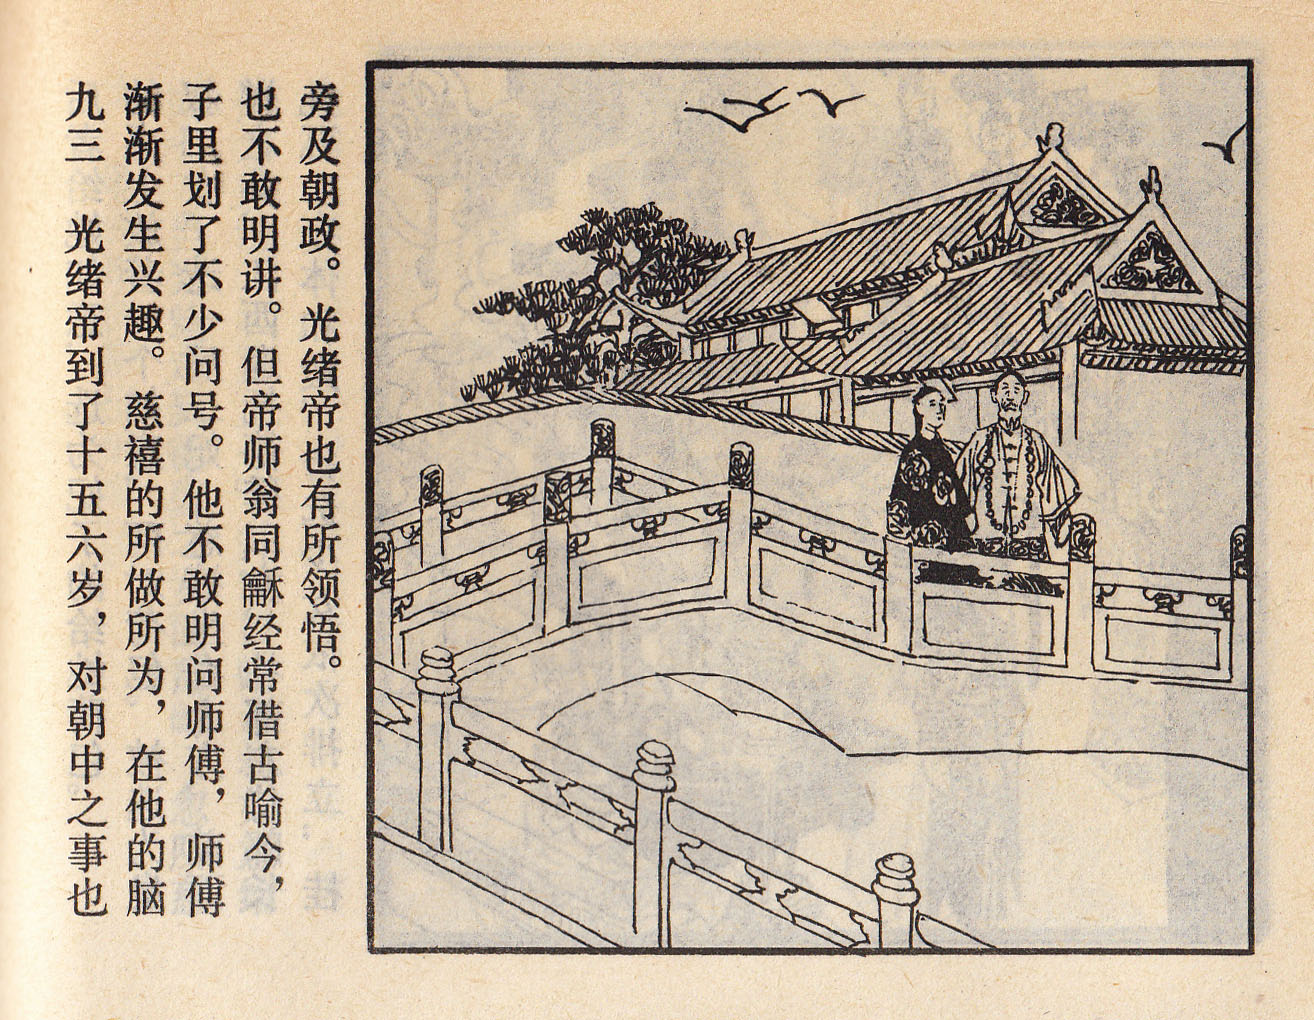 九三　光绪帝到了十五六岁，对朝中之事也
渐渐发生兴趣。慈禧的所做所为，在他的脑
子里划了不少问号。他不敢明问师傅，师傅
也不敢明讲。但帝师翁同龢经常借古喻今，
旁及朝政。光绪帝也有所领悟。